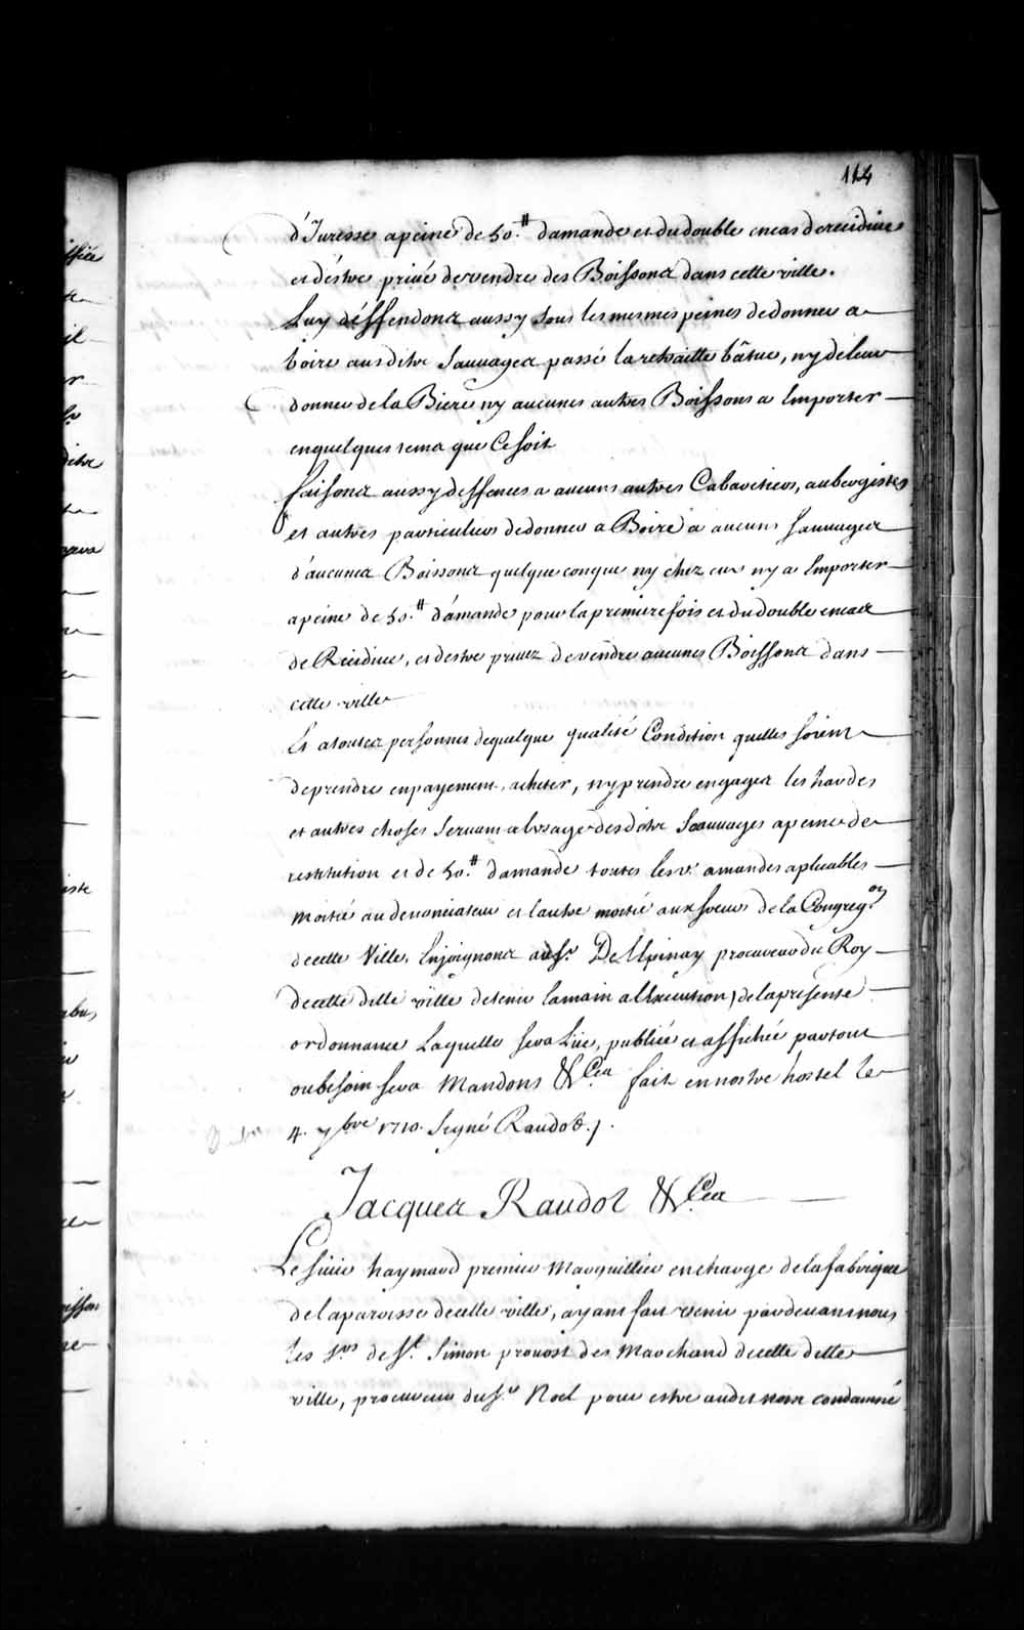 114
d'Iuresse a peine de 50.# damande et du double en cas de recidive
et destre privé de vendre des Boissons dans cette ville.
Luy déffendons aussy sous les mesmes peines de donner a
boire ausdits Sauvages passé la retraitte bâtue, ny de leur
donner de la Biere ny aucunes autres Boissons a Emporter
en quelques tems que Ce soit
faisons aussy deffences a aucuns autres Cabaretiers, aubergistes
et autres particuliers de donner a Boire a aucuns Sauvages
d'aucunes Boissons quelque conque ny chez eux ny a Emporter
a peine de 50.# d'amande pour la premiere fois et du double en cas
de Recidive, et destre privez de vendre aucunes Boissons dans
cette ville
Et a toutes personnes de quelque qualité Condition quelles soient
de prendre en payement, acheter, ny prendre en gages les hardes
et autres choses servant a lusage desdits Sauvages a peine de
restitution et de 50.# damande toutes lesd. amandes aplicables
moitié au denonciateur et lautre moitié aux soeurs de la Congreg.on
de cette Ville. Enjoignons au Sr. De Lépinay procureur du Roy
de cette ditte ville de tenir la main a lExecution, de la presente
ordonnance Laquelle sera Lüe, publiée et affichée partout
ou besoin sera Mandons &Ca. fait en nostre hostel le
4. 7bre 1710. Signé Raudot./.
Jacques Raudot &Ca
Le sieur haymard premier Marguillier en charge de la fabrique
de la paroisse de cette ville, ayant fait venir pardevant nous
les Srs de St. Simon provost des Marechaud de cette ditte
ville, procureur du Sr. Noel pour estre audit nom condamné